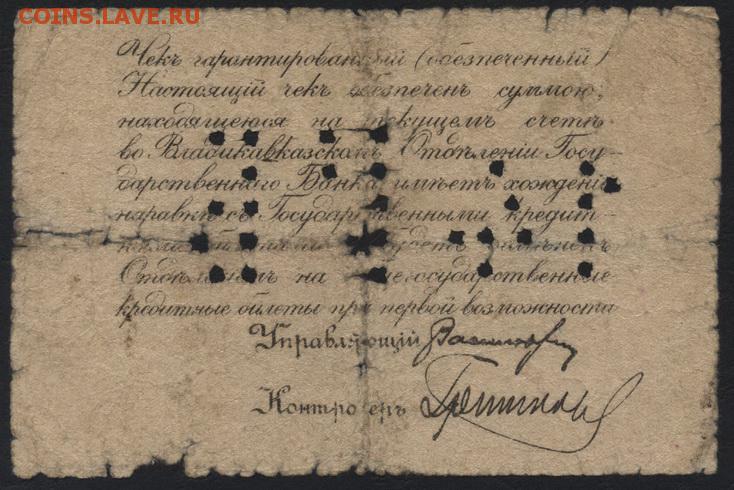 COINS.LAVE.RU
Чекъ гарантированный (обезпеченный)
Настоящій чекъ обезпеченъ суммою,
находящеюся на текущемъ счетѣ
во Владикавказскомъ Отдѣленіи Госу-
дарственнаго Банка, имѣетъ хожденіе
наравнѣ съ Государственными кредит-
Отдѣленіемъ на государственные
кредитные билеты при первой возможности
Управляющій
Контролеръ